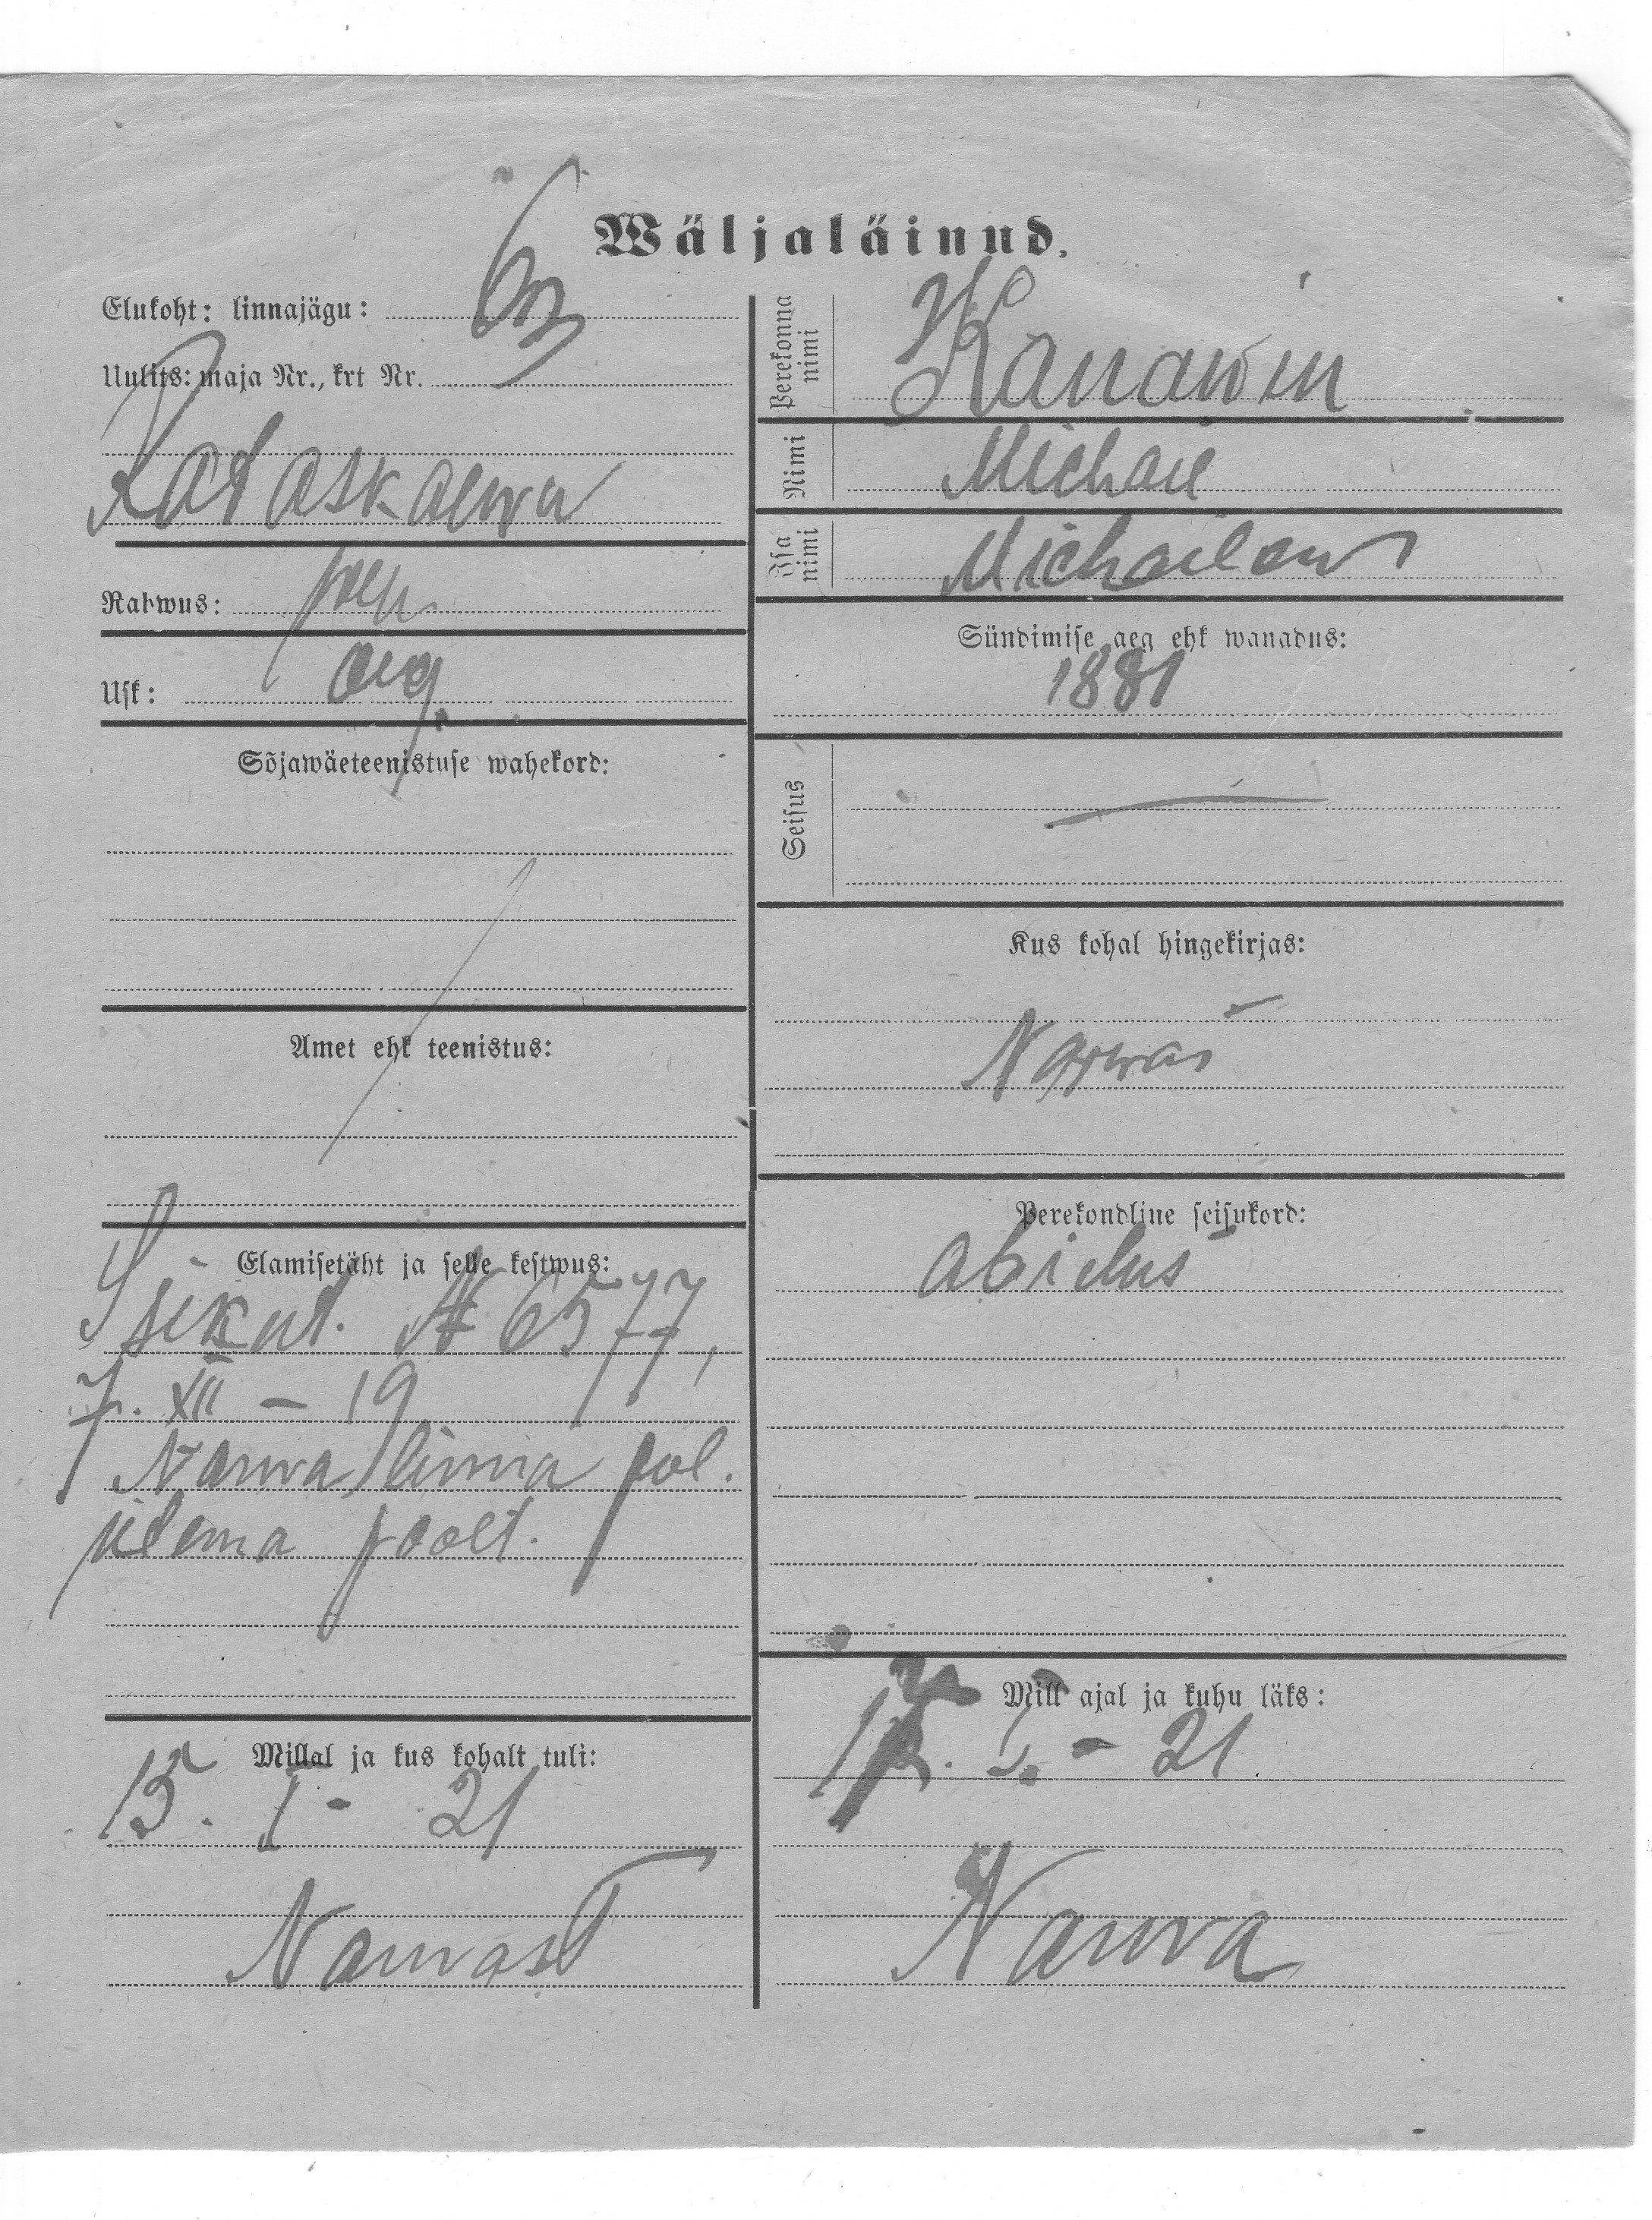 Wäljaläinud.
Elukoht: linnajägu:
Uulits: maja Nr., krt Nr.
Rahwus:
Usk:
Sõjawäeteenistuse wahekord:
Amet ehk teenistus:
Elamisetäht ja selle kestwus:
Isikut. № 6577,
7. XII – 19
Narwa linna pol.
ülema poolt.
Millal ja kus kohalt tuli:
15. I - 21
Narwast
Perekonna nimi
Kanawin
Nimi
Michail
Isa nimi
Michailow
Sündimise aeg ehk wanadus:
1881
Seisus
Kus kohal hingekirjas:
Narwas
Perekondline seisukord:
abielus
Mill ajal ja kuhu läks:
I. - 21
Narwa